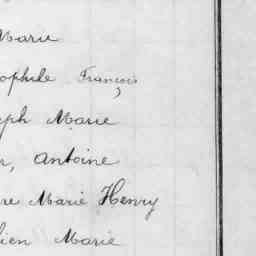 Marie
ophile François
eph Marie
r, Antoine
re Marie Henry
lien Marie